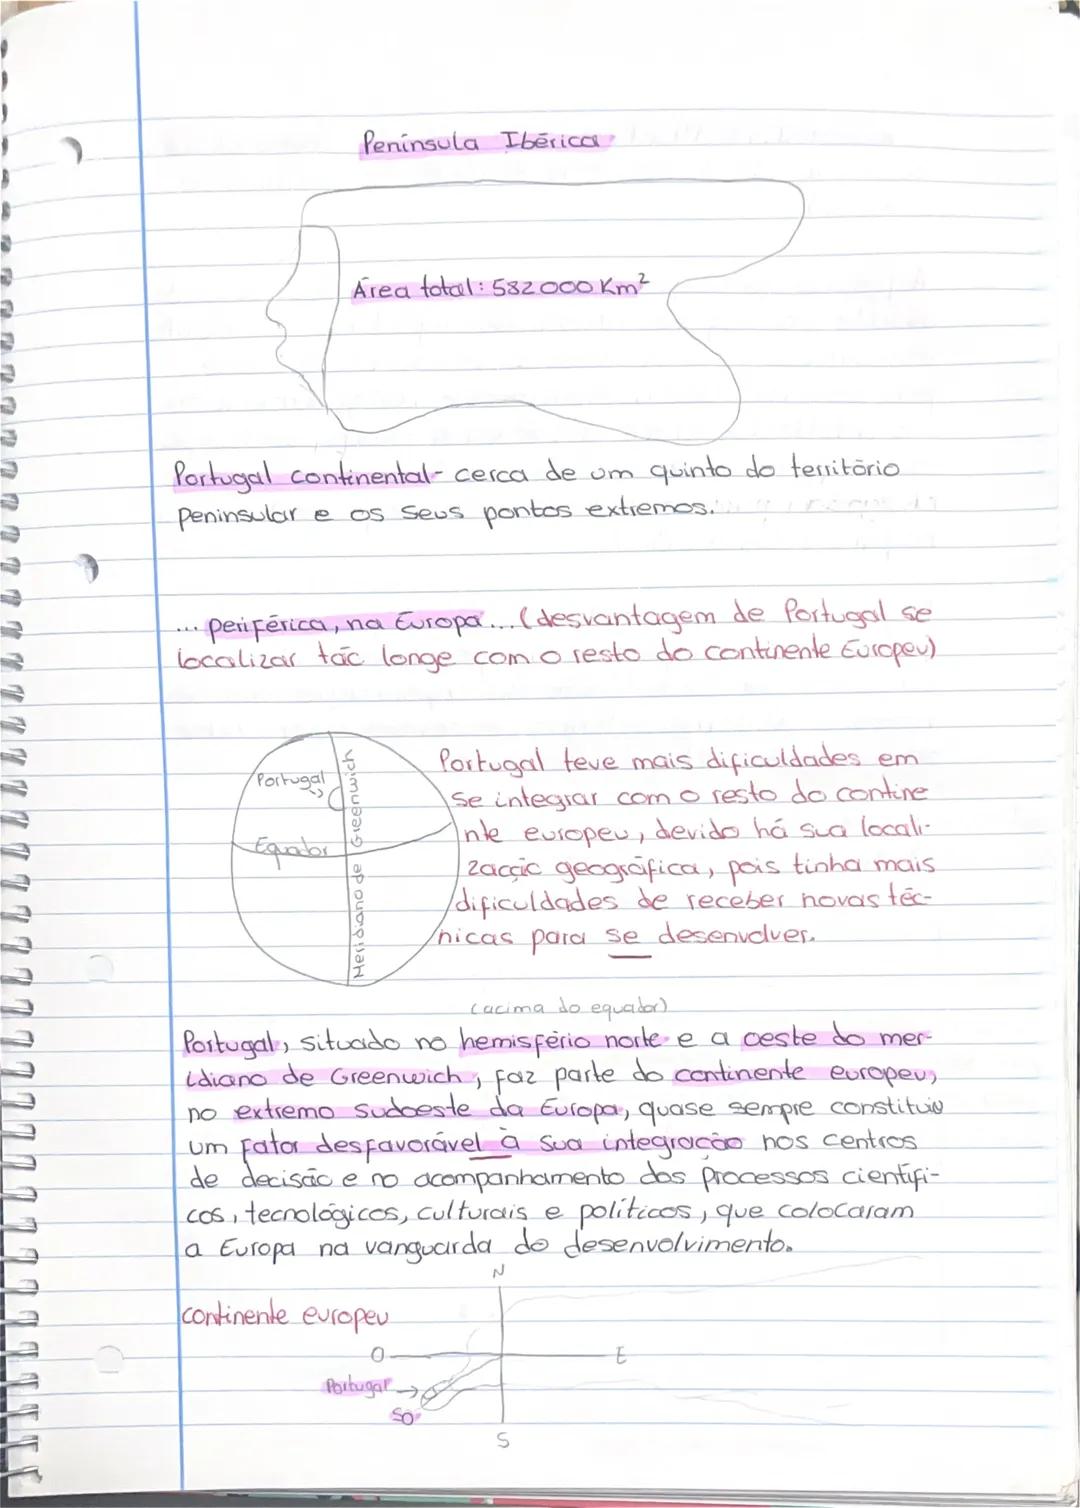 Península Ibérica
Área total: 582000 Km²
Portugal continental- cerca de um quinto do território
peninsular e os seus pontos extremos.
... periférica, na Europa... (desvantagem de Portugal se
localizar tão longe com o resto do continente Europeu)
Portugal
Equador
Meridiano de Greenwich
Portugal teve mais dificuldades em
se integrar com o resto do contine
nte europeu, devido há sua locali-
zacção geográfica, pois tinha mais
dificuldades de receber novas téc-
nicas para se desenvolver.
(acima do equador)
Portugal, situado no hemisfério norte e a oeste do mer-
idiano de Greenwich, faz parte do continente europeu,
no extremo sudoeste da Europa, quase sempre constituiu
um fator desfavorável à sua integração nos centros
de decisão e no acompanhamento dos processos científi-
cos, tecnológicos, culturais e políticos, que colocaram
a Europa na vanguarda do desenvolvimento.
N
continente europeu
O
E
Portugal
SO
S